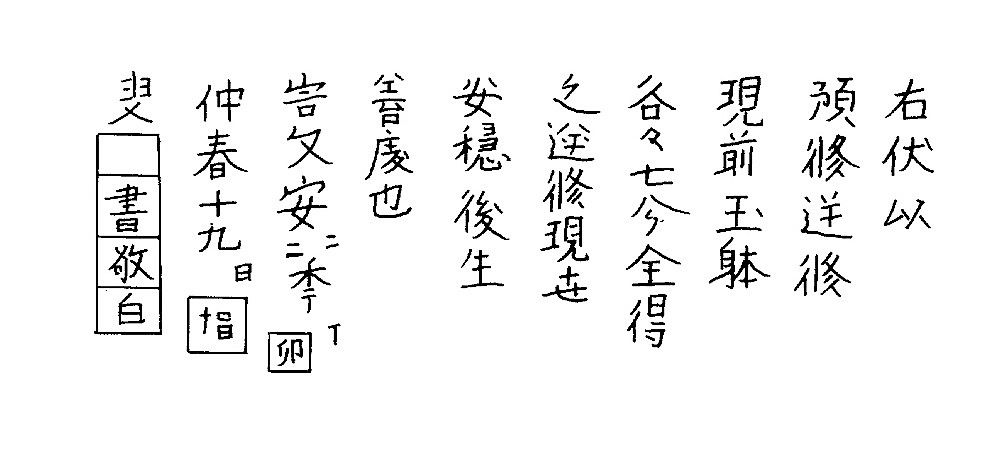 右伏以
預修逆修
現前玉躰
各々七分全得
之逆修現世
安穏後生
善處也
旹文安二二季丁卯
仲春十九日
書敬白